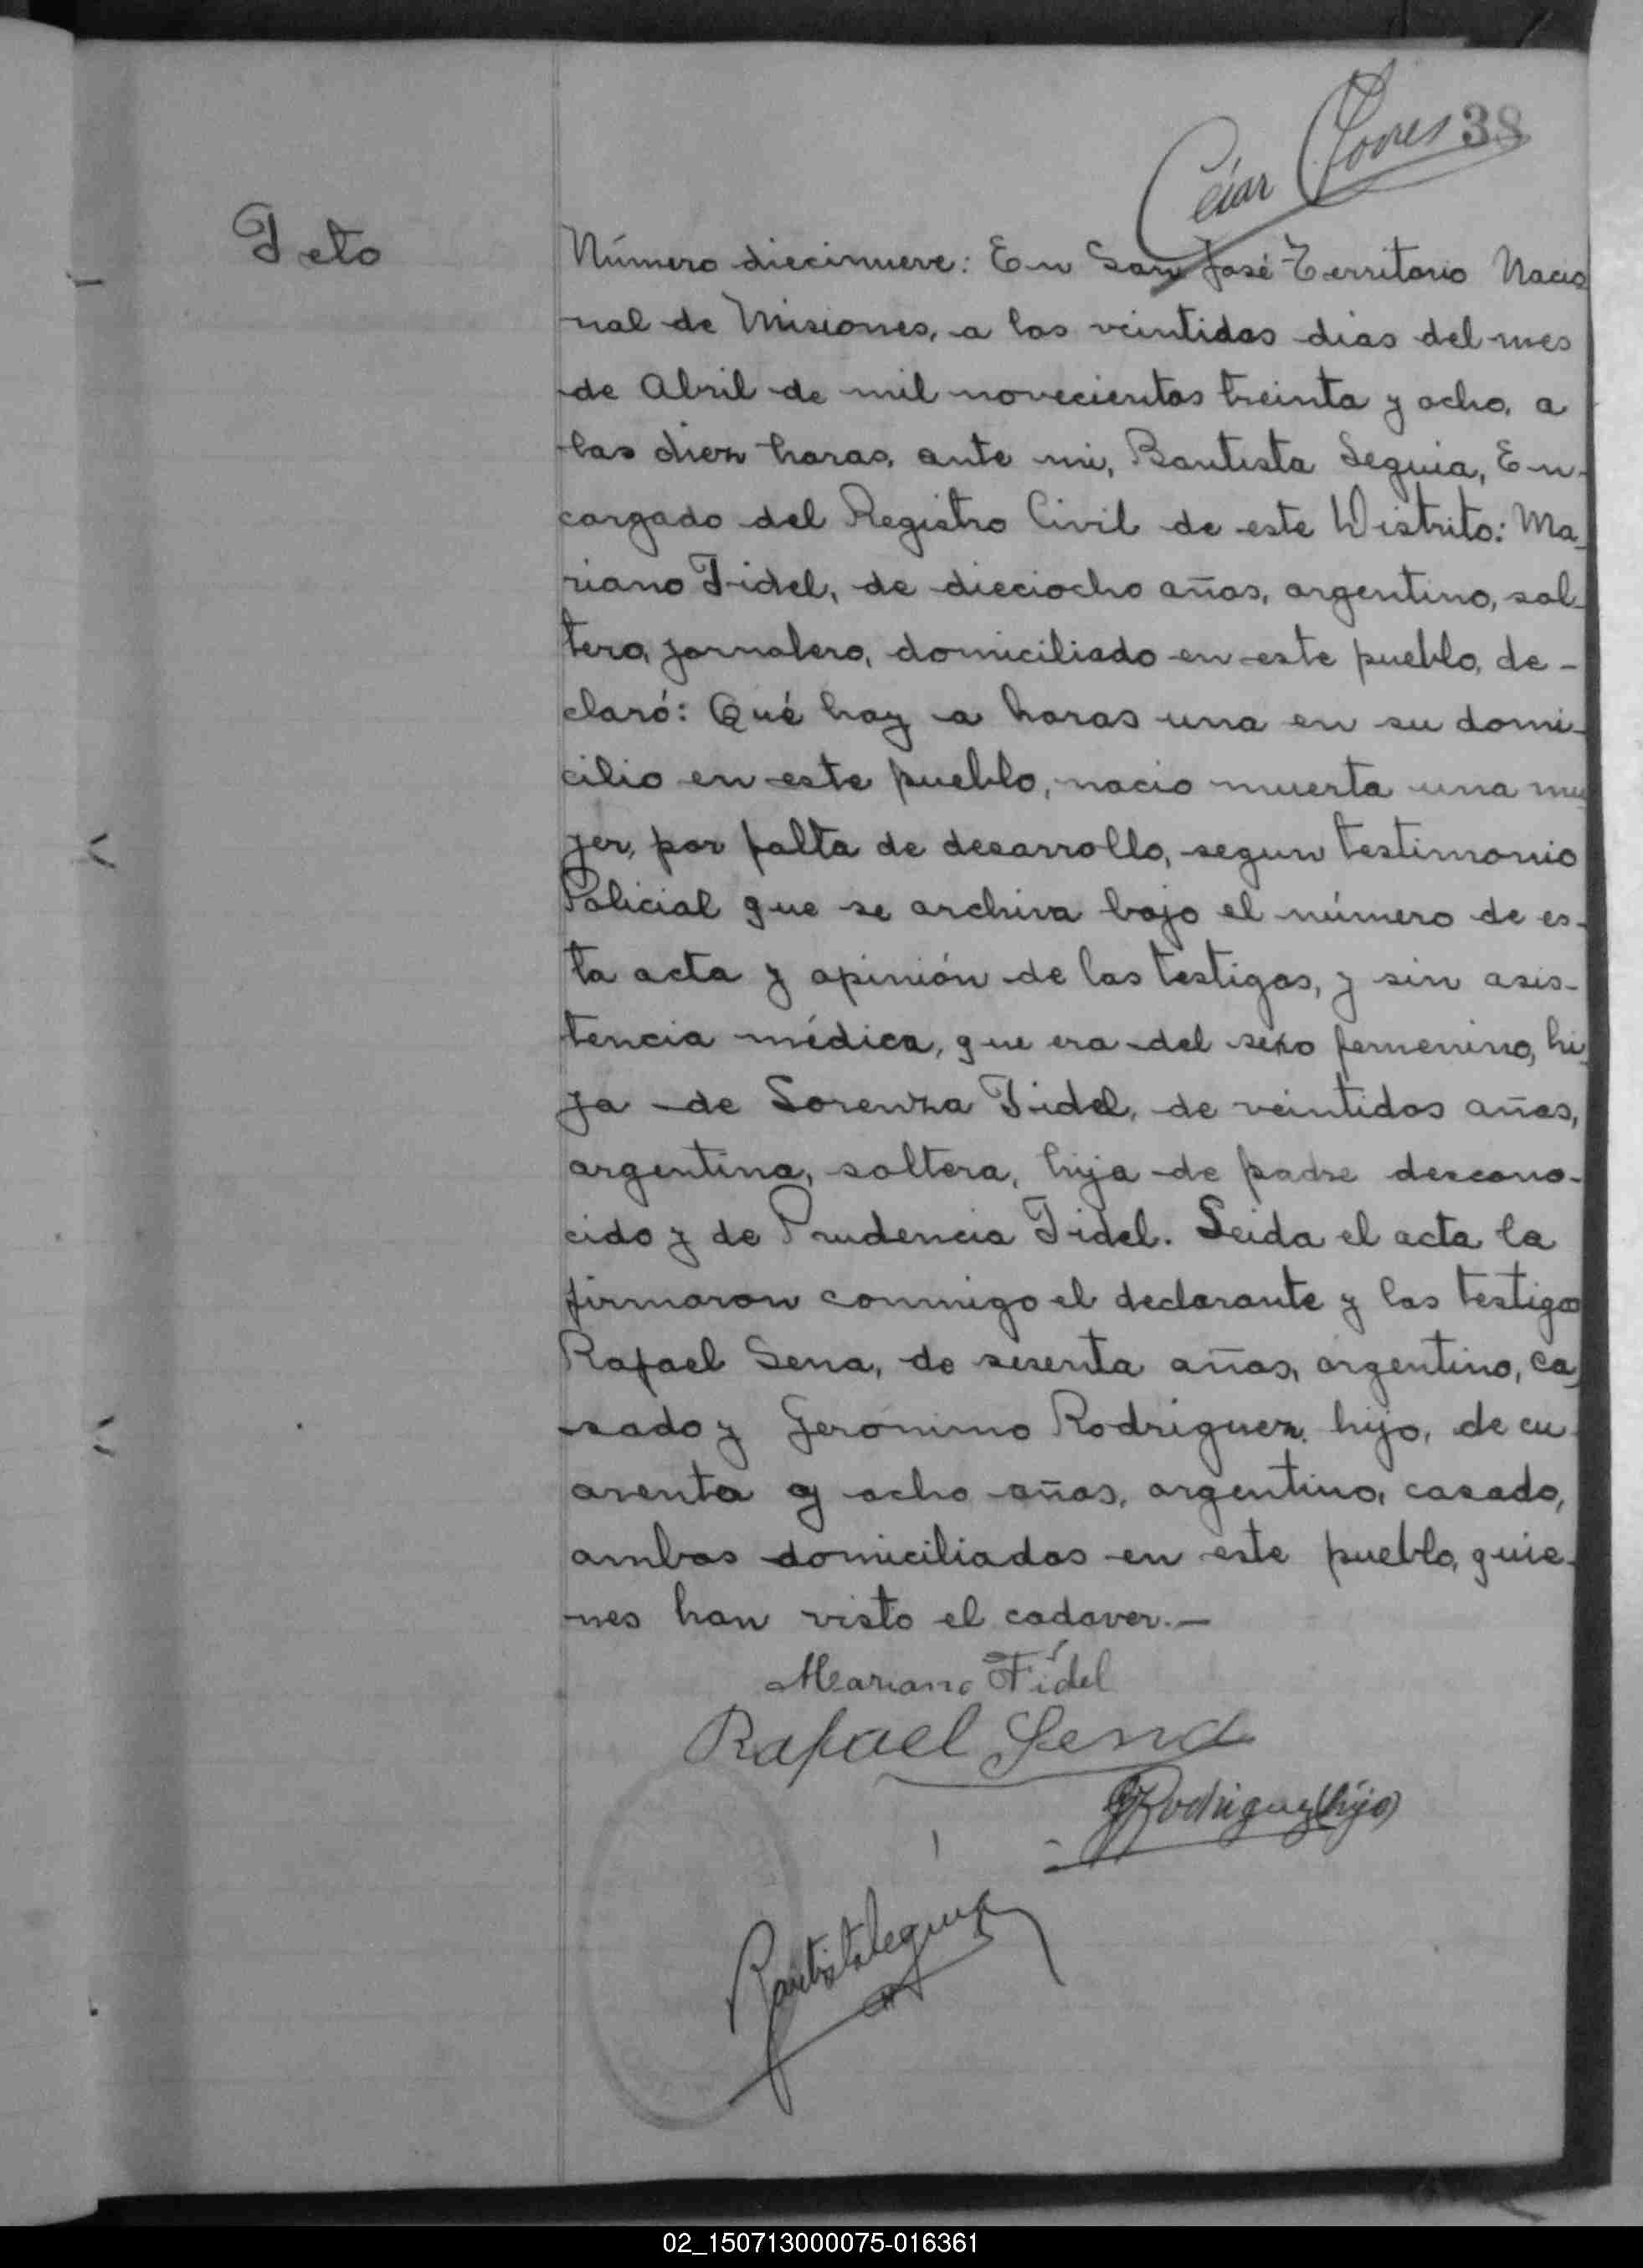 César Flores 38
Feto
Número diecinueve: En San José Territorio Nacio
nal de Misiones, a los veintidos dias del mes
de Abril de mil novecientos treinta y ocho, a
las diez horas, ante mi, Bautista Seguia, En-
cargado del Registro Civil de este Distrito: Ma-
riano Fidel, de dieciocho años, argentino, sol-
tero, jornalero, domiciliado en este pueblo, de-
claró: Qué hoy a horas una en su domi-
cilio en este pueblo, nacio muerta una mu
jer, por falta de desarrollo, segun testimonio
Policial que se archiva bajo el número de es-
ta acta y opinión de los testigos, y sin asis-
tencia médica, que era del sexo femenino, hi-
ja de Lorenza Fidel, de veintidos años,
argentina, soltera, hija de padre descono-
cido y de Prudencia Fidel. Leida el acta la
firmaron conmigo el declarante y los testigos
Rafael Sena, de sesenta años, argentino, ca-
sado y Gerónimo Rodriguez hijo, de cu
arenta y ocho años, argentino, casado,
ambos domiciliados en este pueblo, quie-
nes han visto el cadaver.—
Mariano Fidel
Rafael Sena
G Rodriguez (hijo)
Bautista Seguia
02_150713000075-016361